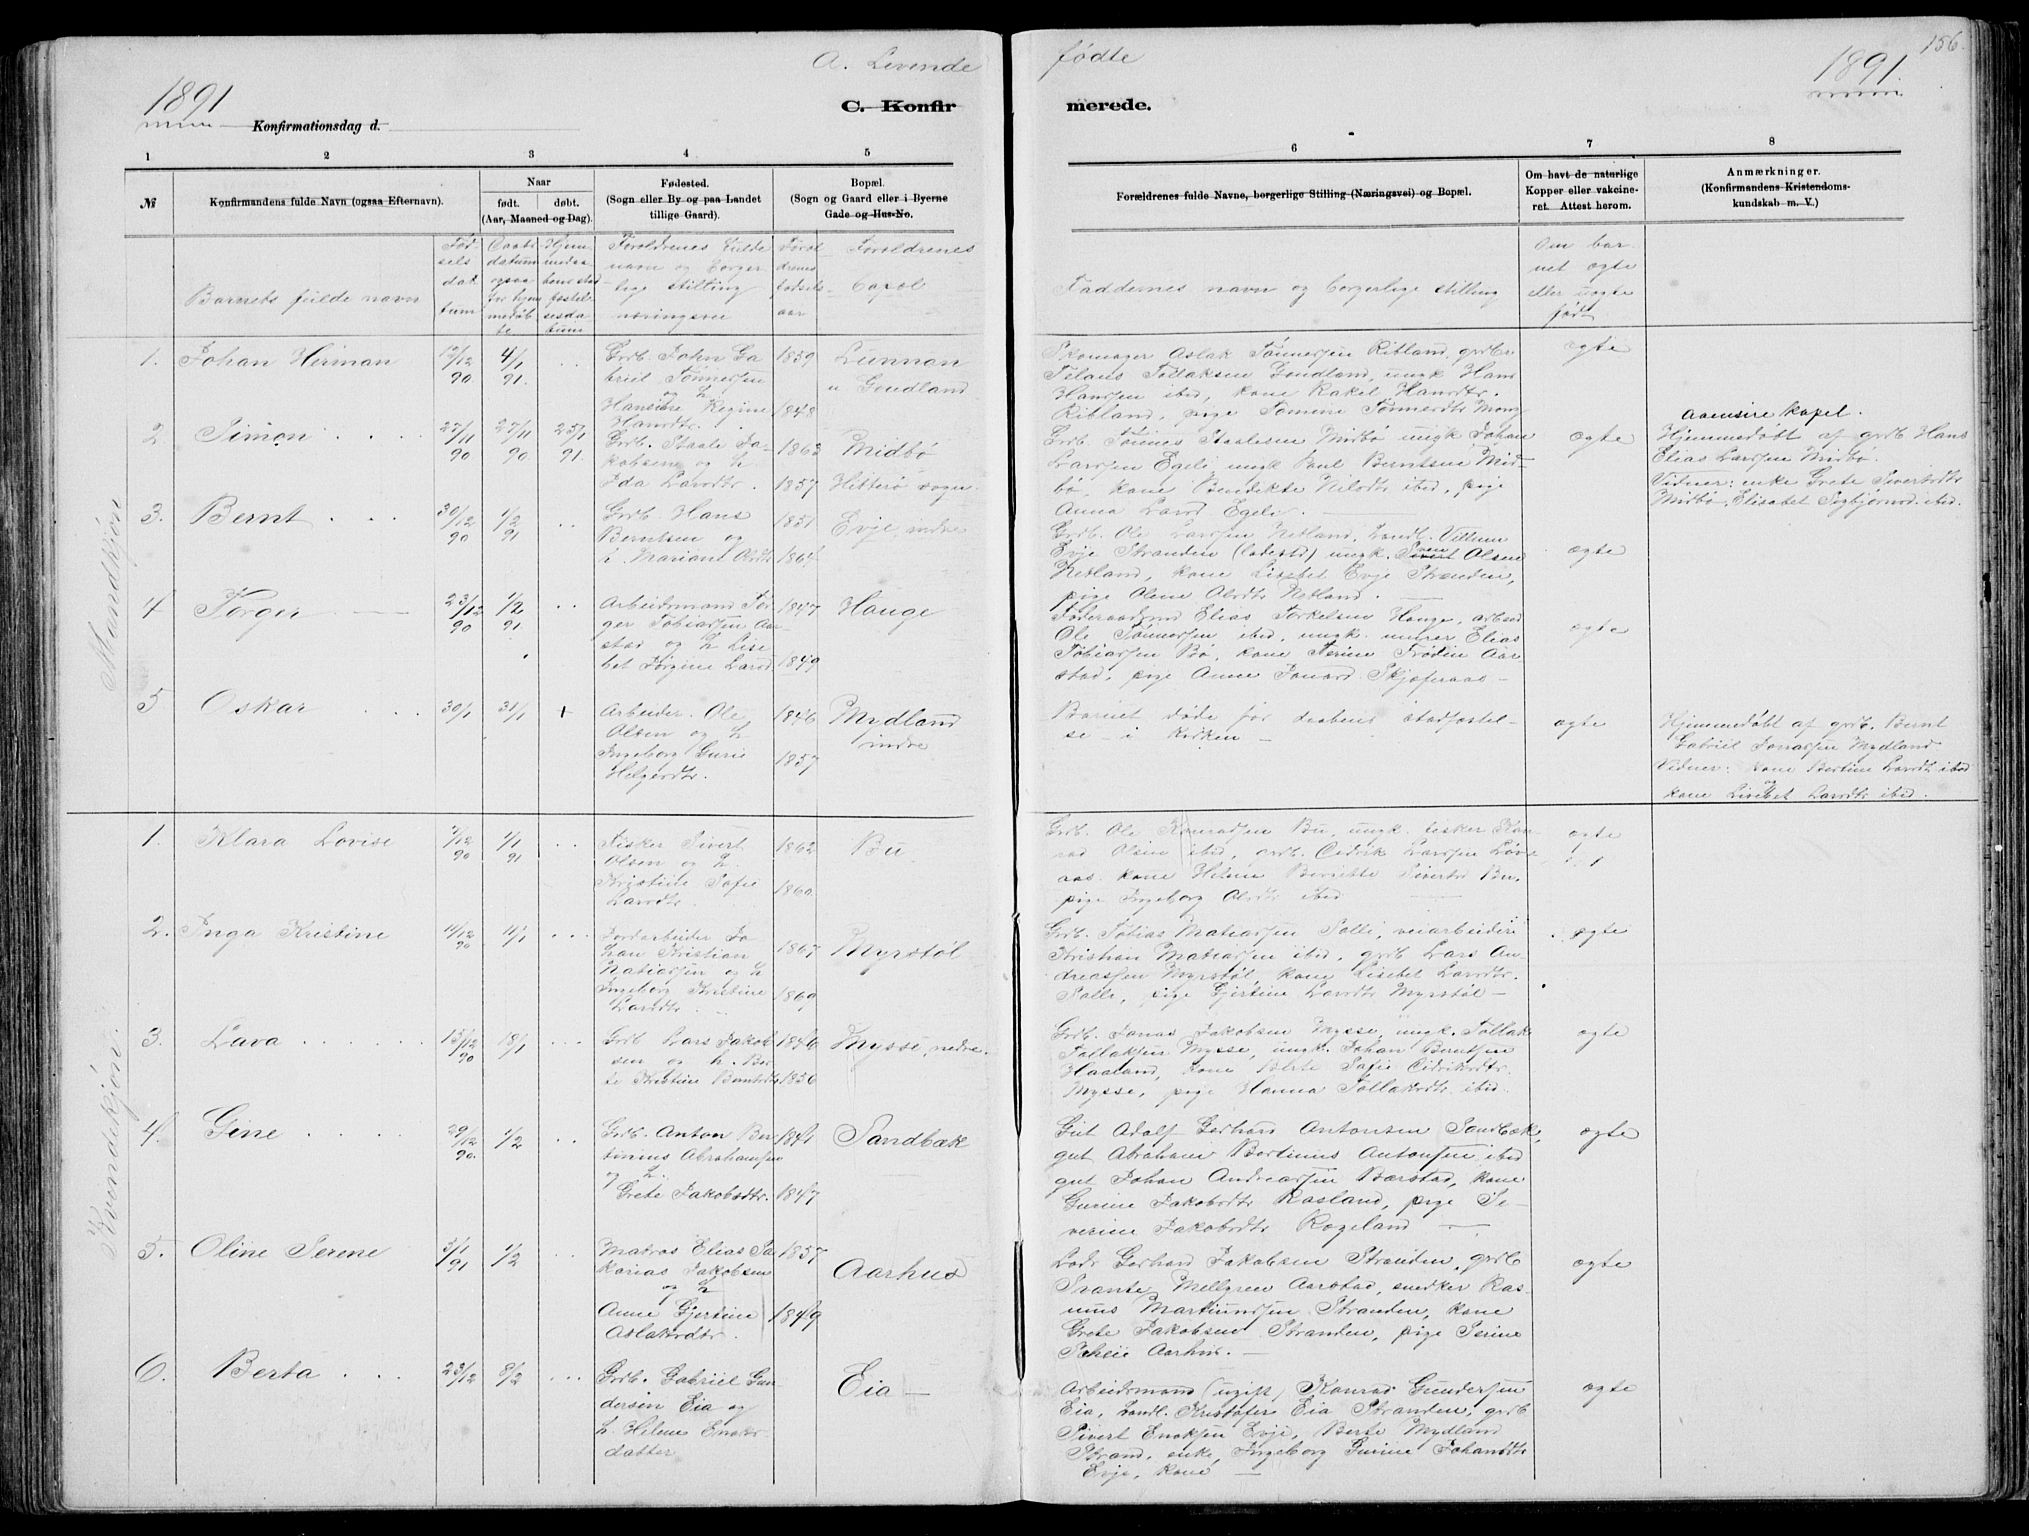 A. Levende
fødte
156.
1891
1891.
C. Konfir
merede.
Konfirmationsdag d.
1 2 3 4 5
6 7 8
№
Konfirmandens fulde Navn (ogsaa Efternavn).
Naar
født. døbt.
(Aar, Maaned og Dag).
Fødested.
(Sogn eller By og paa Landet
tillige Gaard).
Bopæl.
(Sogn og Gaard eller i Byerne
Gade og Hus-No.
Forældrenes fulde Navne, borgerlige Stilling (Næringsvei) og Bopæl.
Om havt de naturlige
Kopper eller vakcine-
ret. Attest herom.
Anmærkninger.
(Konfirmandens Kristendoms-
kundskab m. V.)
Barnets fulde navn
Fød-
sels
dat
tum
Daabs
datum
ogsaa
for hjem
medøb
te
Hjem
medaa
bens stad
fæstel-
sesda
tum
Foroldrenes fulde
navn og borger
lige stilling
næringsvei
Forol
drenes
fødsels
aar
Foroldrenes
bopol
Faddernes navn og borgerlige stilling
Om bar-
net ægte
eller uægte
født
Mandkjøn
1. Johan Herman
12/12 90
4/1 91.
Grdb. John Ga
briel Tønnessen
og h.
Hansine Regine
Hansdtr.
1859
1848
Lunnan
u Goudland
Skomager Aslak Tønnessen Ribland, grdbr
Tollaksen Goudland, ungk Hans
Hanssen ibid, kone Rakel Hansdtr.
Ribland, pige Tomine Tønnesdtr
ægte
2 Simon . . .
27/11 90
27/11 90.
25/1 91.
Grdb. Staale Ja-
kobsen og h
Ida Larsdtr.
1863
1857
Midbø
Hitterø sogn.
Grdb. Tønnes Staalesen Midbø ungk Johan
Larssen Egeli ungk Paul Berntsen Mid-
bø, kone Bendikte Nilsdtr ibid, pige
Anna Larsd Egeli.
ægte
Aaensire kapel.
Hjemmedøbt af grdb Hans
Elias Larssen Midbø.
Vidner: enke Grete Sivertsdtr
Midbø, Elisabet ibid.
3. Bernt . . .
30/12 90
1/2 91
Grdb. Hans
Berntsen og
h. Mariane Olsdtr
1851
1864
Evje indre
Grdb. Ole Larssen Netland, Landb. Villum
Evje Stranden (ladestd) ungk. Sven Olsen
Netland, kone Lisebet Evje Stranden,
pige Oline Olsdtr Netland.
ægte
4 Torger
23/12 90
1/2 91
Arbeidsmand Tor
ger Tobiassen Aar-
stad og h Lise
bet Jørgine Larsd
1847
1849
Hauge
Føderaadsmd Elias Torkelsen Hauge, arbmd
Ole Tønnessen ibid, ungk. murer Elias
Tobiassen Bø, kone Serine Aar
stad, pige Anne
ægte
5 Oskar . . .
30/1
31/1
+
Arbeider Ole
Olsen og h
Ingeborg Gurie
Helgesdtr.
1846
1857
Mydland
indre
Barnet døde før daabens stadfæstel-
se i kirken
ægte
Hjemmedøbt af grdb. Bernt
Gabriel Jonassen Mydland
Vidner: kone Bertine Larsdtr ibid
og
kone Lisebet Larsdtr ibid.
Kvindekjøn.
1. Klara Lovise
7/12 90
1/1 91
Fisker Sivert
Olsen og h.
Kristine Sofie
Larsdtr.
1862
1860
Bu
Grdb. Ole Konradsen Bu, ungk. fisker Kon
rad Olsen ibid, grdb. Cedrik Larssen Løv
aas. kone Helene Sivertsd Bu,
pige Ingeborg Olsdtr ibid
ægte
2. Inga Kristine
11/12 90
11/1
Jordarbeider Jo
han Kristian
Matiassen og h
Ingeborg Kristine
Larsdtr.
1867
1869
Myrstøl
Grdb. Tobias Matiassen Salle, veiarbeider
Kristian Matiassen ibid, grdb Lars An
dreassen Myrstøl, kone Lisebet Larsdtr.
Salle, pige Gjertine Larsdtr Myrstøl
ægte
3. Lava
15/12 90
18/1
Grdb Lars Jakob
sen og h. Ber
te Kristine Berntsdtr
1846
1856
Mysse nedre.
Grdb. Jonas Jakobsen Mysse, ungk. Tollak
Tollaksen Mysse, ungk. Johan Berntsen
Haaland, kone Berte Sofie Cidrikdtr.
Mysse, pige Hanna Tollaksdtr ibid.
ægte
4. Gine
29/12 90.
1/2
Grdb. Anton Ber
tinius Abrahamsen
og h.
Grete Jakobsdtr.
1841
1847
Sandbæk
Gut Adolf Gerhard Antonsen Sandbæk,
gut Abraham Bertinius Antonsen ibid
gut Johan Andreassen Barstad, kone
Gurine Jakobsdtr Rasland, pige Se-
verine Jakobsdtr Rogeland
ægte
5. Oline Serene
5/1 91
1/2
Matros Elias Sa
karias Jakobsen
og h
Anne Gjertine
Aslaksdtr.
1857
1849
Aarhus
Lods Gerhard Jakobsen Stranden, grdb
Svante Mellgren Aarstad, snedker Ras
mus Martinussen Stranden, kone
Grete Jakobsen Stranden, pige Serine
Scheie Aarhus.
ægte
6. Berta . . .
23/12
8/2
Grdb. Gabriel Gun
dersen Eia og
h. Helene Enoks-
datter
Eia
Arbeidsmand (ugift) Konrad Gundersen
Eia, Landl. Kristofer Eia Stranden, grdb
Sivert Enoksen Evje, Berte Mydland
Strand, enke, Ingeborg Gurine Johansdtr
Evje, kone
ægte